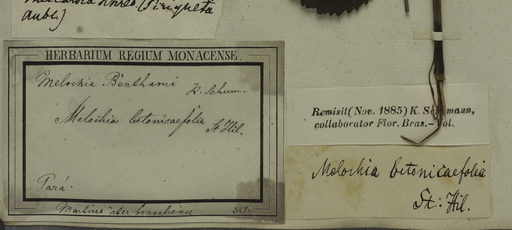 (Riqueta
Aubl.)
HERBARIUM REGIUM MONACENSE.
Melochia Benthami
K. Schum.
Melochia betonicaefolia
St Hil.
Pará.
Martius iter brasiliense
Remisit (Nov. 1885) K. Schumann,
collaborator Flor. Bras.—Pol.
Melochia betonicaefolia
St: Hil.